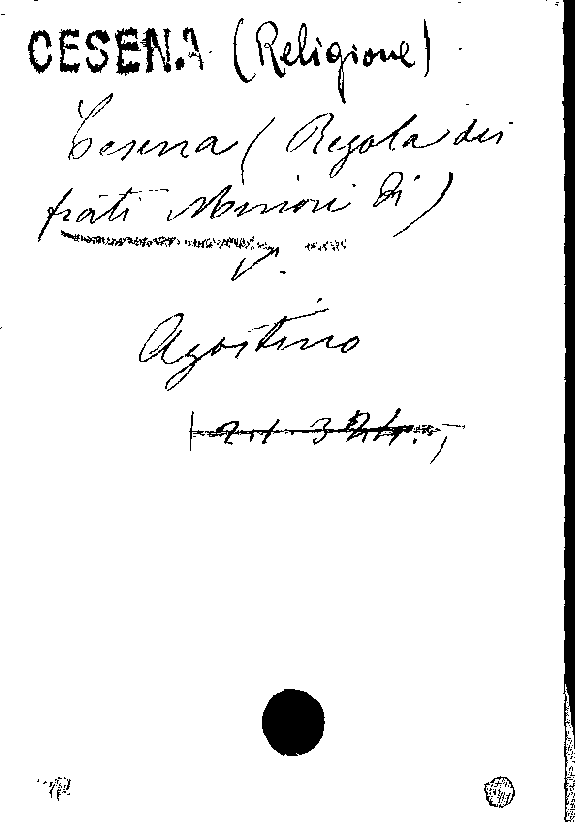 CESENA (Religione)
Cesena (Regola dei
frati Minori di)
V.
Agostino